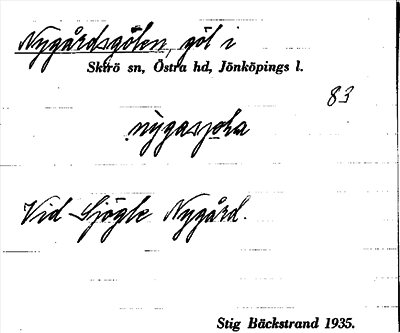 Nygårdsgölen, göl i
Skirö sn, Östra hd, Jönköpings l.
83
Vid Sjögle Nygård.
Stig Bäckstrand 1935.